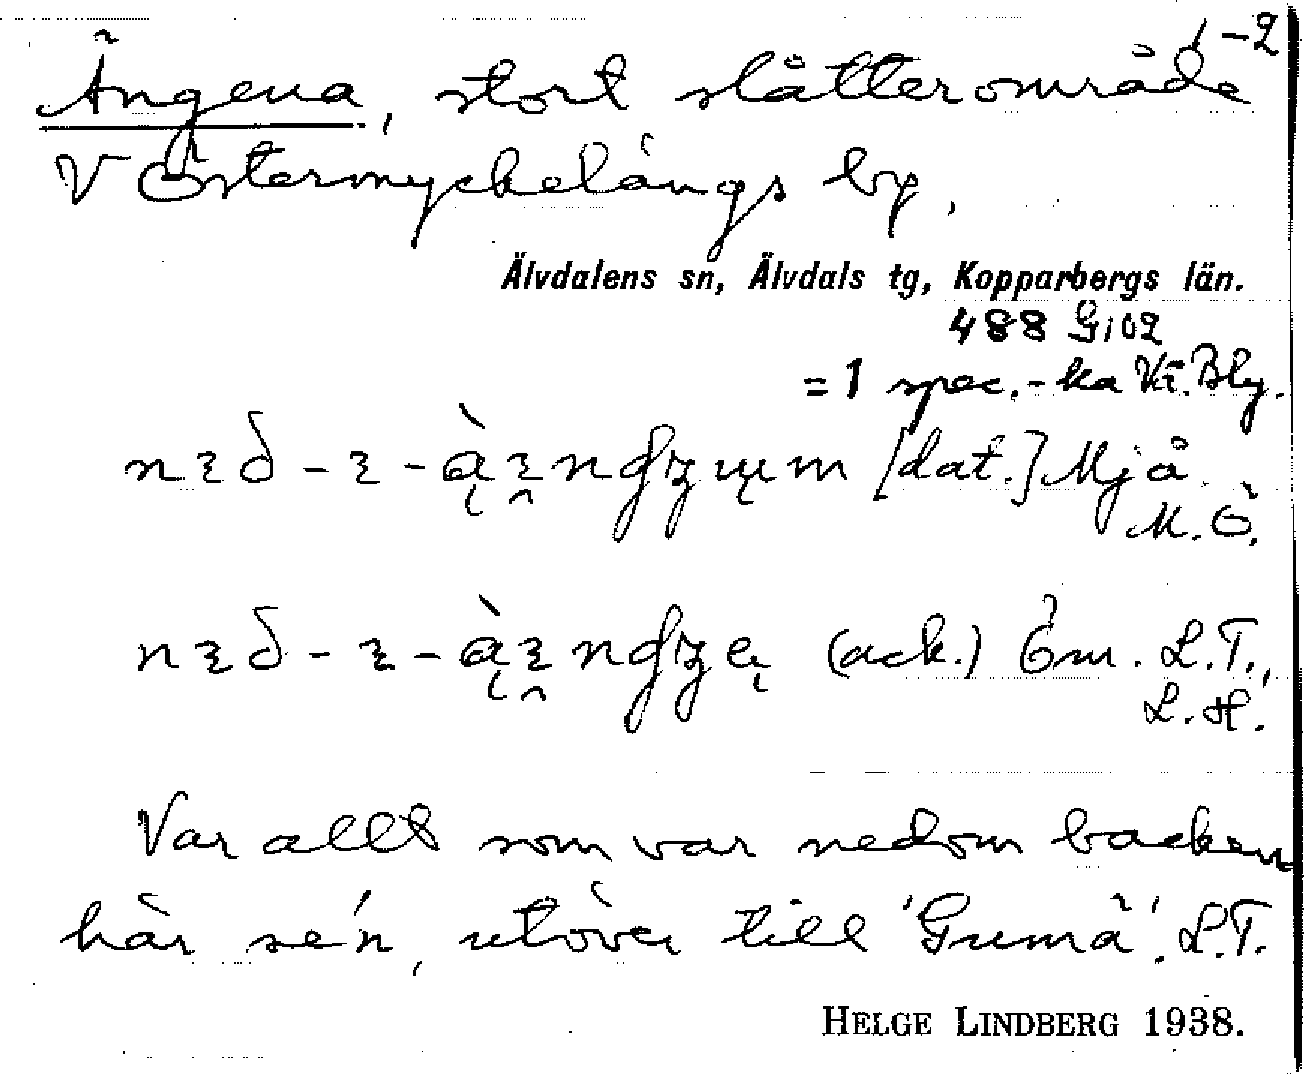 1-2
Ängena, stort slåtterområde
V Östermyckelängs by.
Älvdalens sn, Älvdals tg, Kopparbergs län.
488 G102
=1 spec.-ka Bly.
[dat.] Mjå
M.Ö.
(ack.) Öm. L.T.,
L.H.
Var allt som var nedom backen
här se'n, utöver till 'Gumä'. L.T.
HELGE LINDBERG 1938.